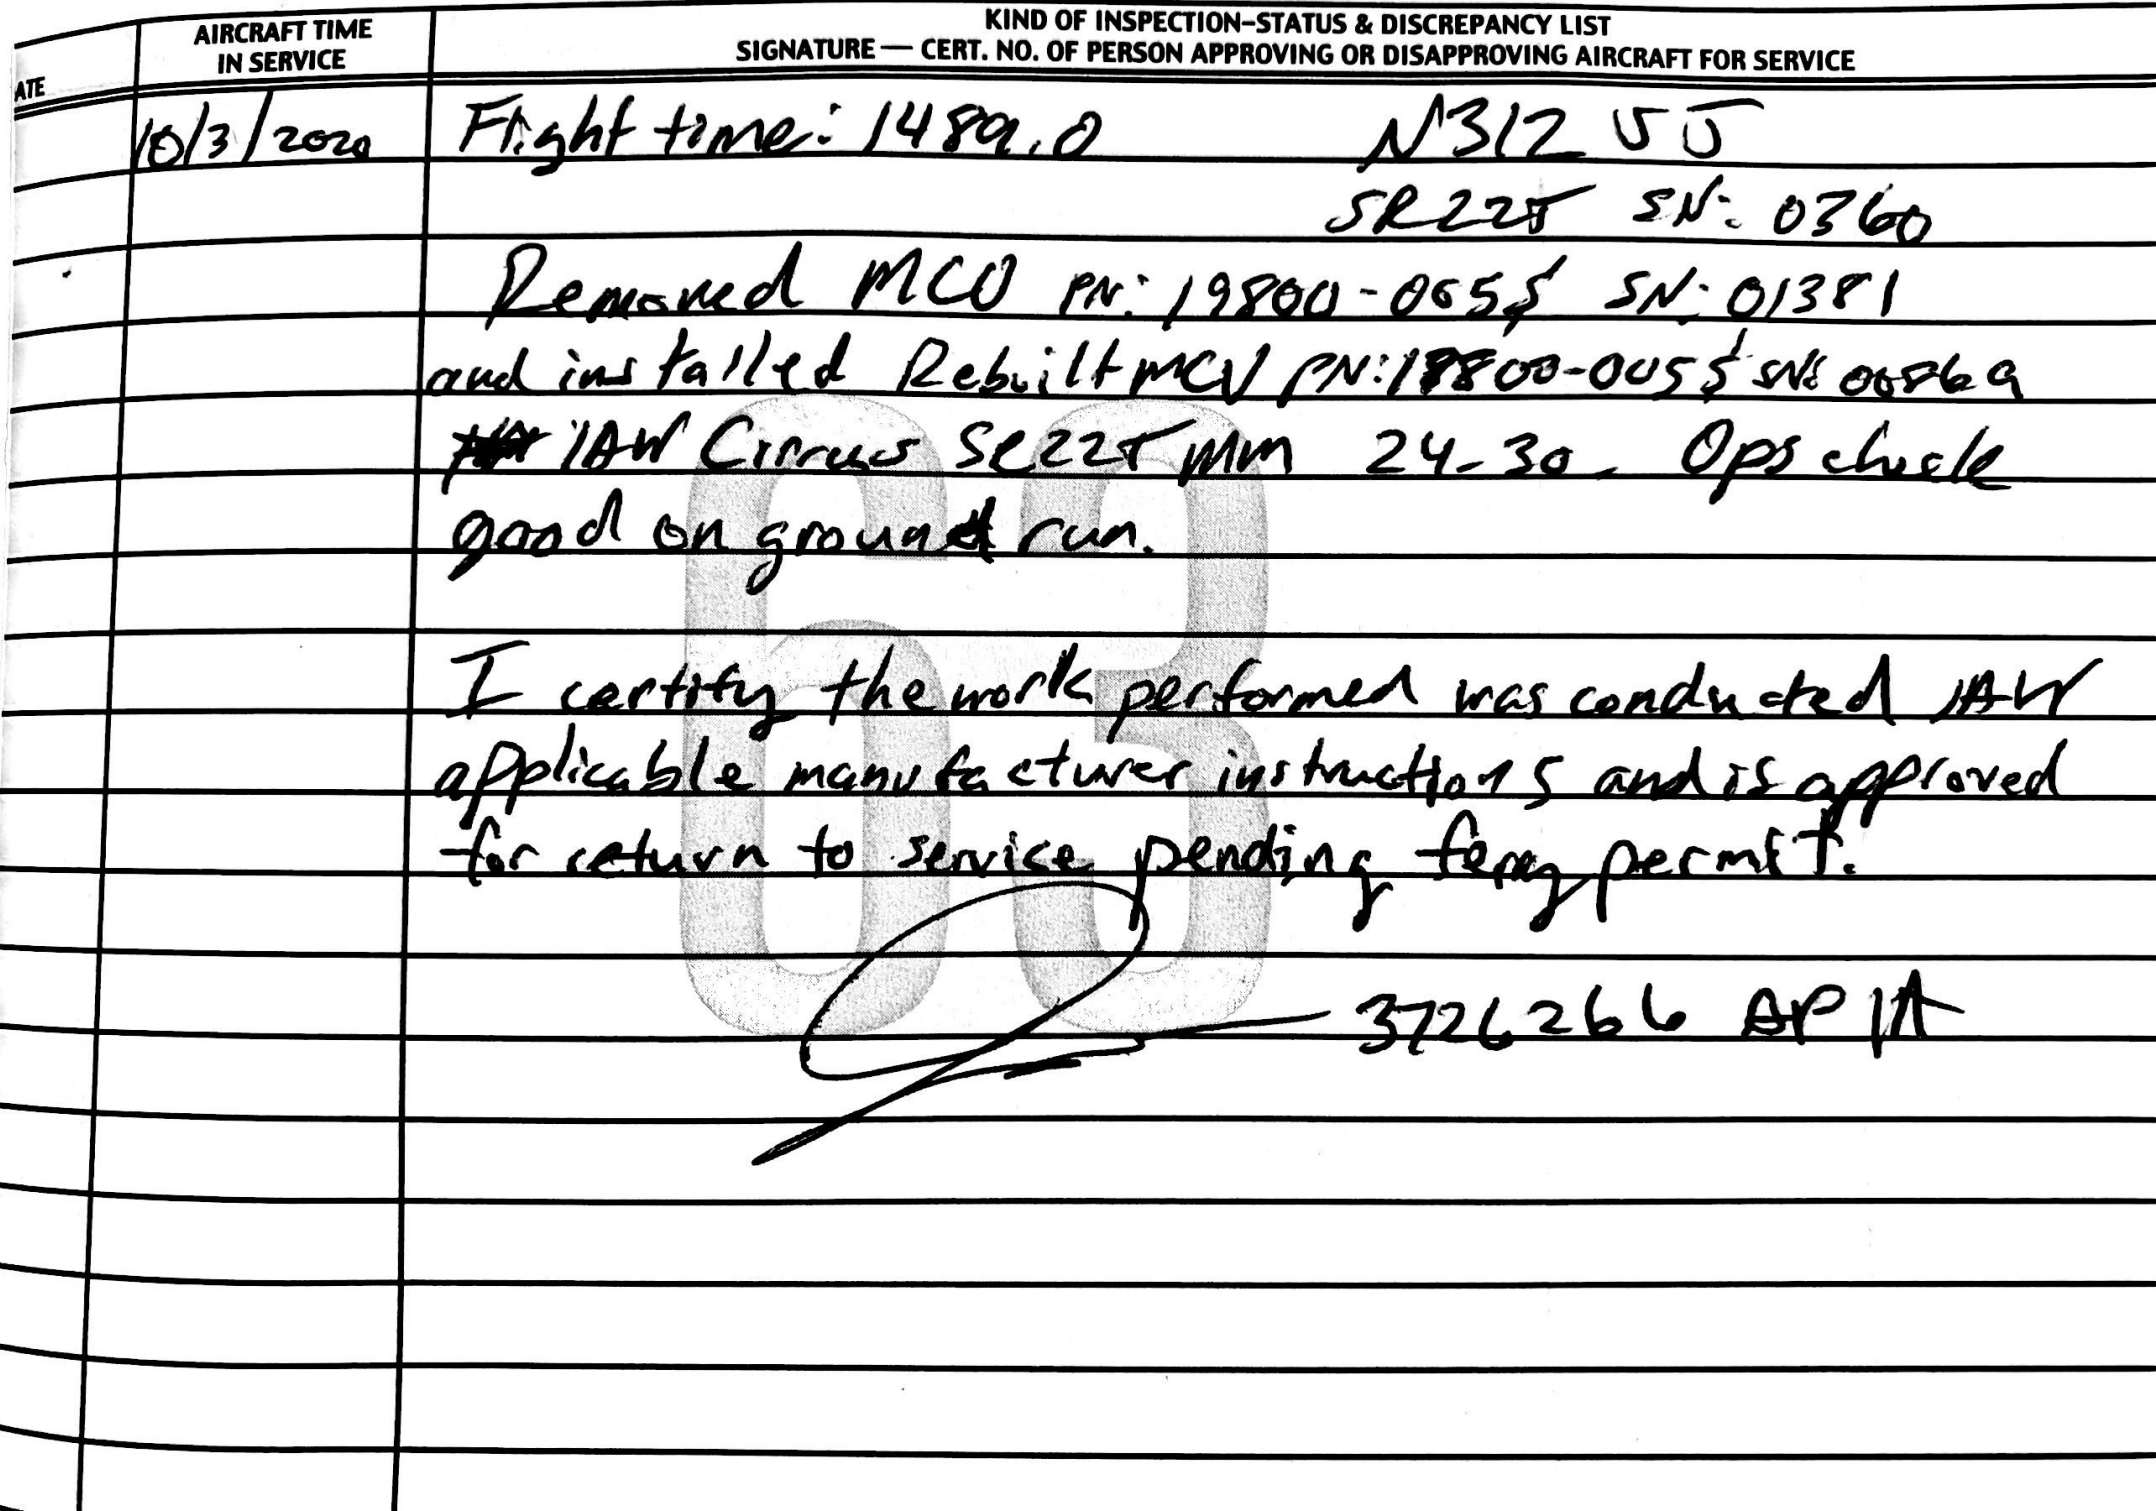 AIRCRAFT TIME IN SERVICE
KIND OF INSPECTION–STATUS & DISCREPANCY LIST
SIGNATURE — CERT. NO. OF PERSON APPROVING OR DISAPPROVING AIRCRAFT FOR SERVICE
ATE
10/3/2020 Flight time: 1489.0 N312
SR22T SN: 0360
Removed MCU PN: 19800- SN: 01381
and installed Rebuilt MCU PN: SN:
IAW Cirrus SR22T MM 24-30. Ops check
good on ground run.
63
I certify the work performed was conducted IAW
applicable manufacturer instructions and is approved
for return to service pending ferry permit.
3726266 AP IA